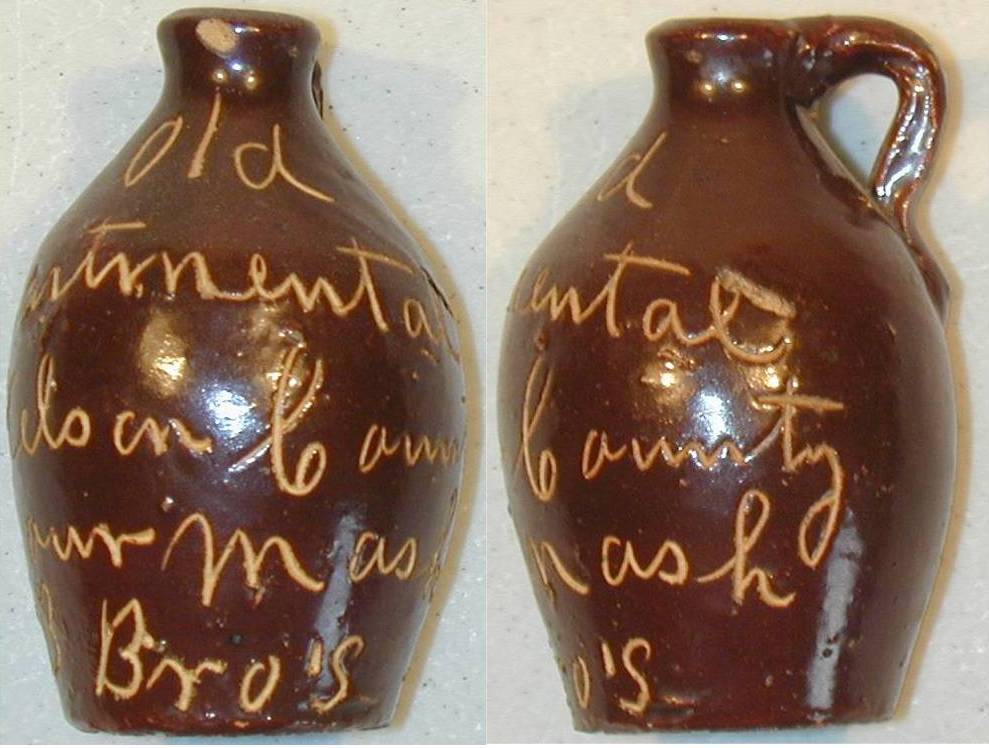 old
ntinenta
elson Coun
our Mash
Bro's
d
ental
County
mash
o's